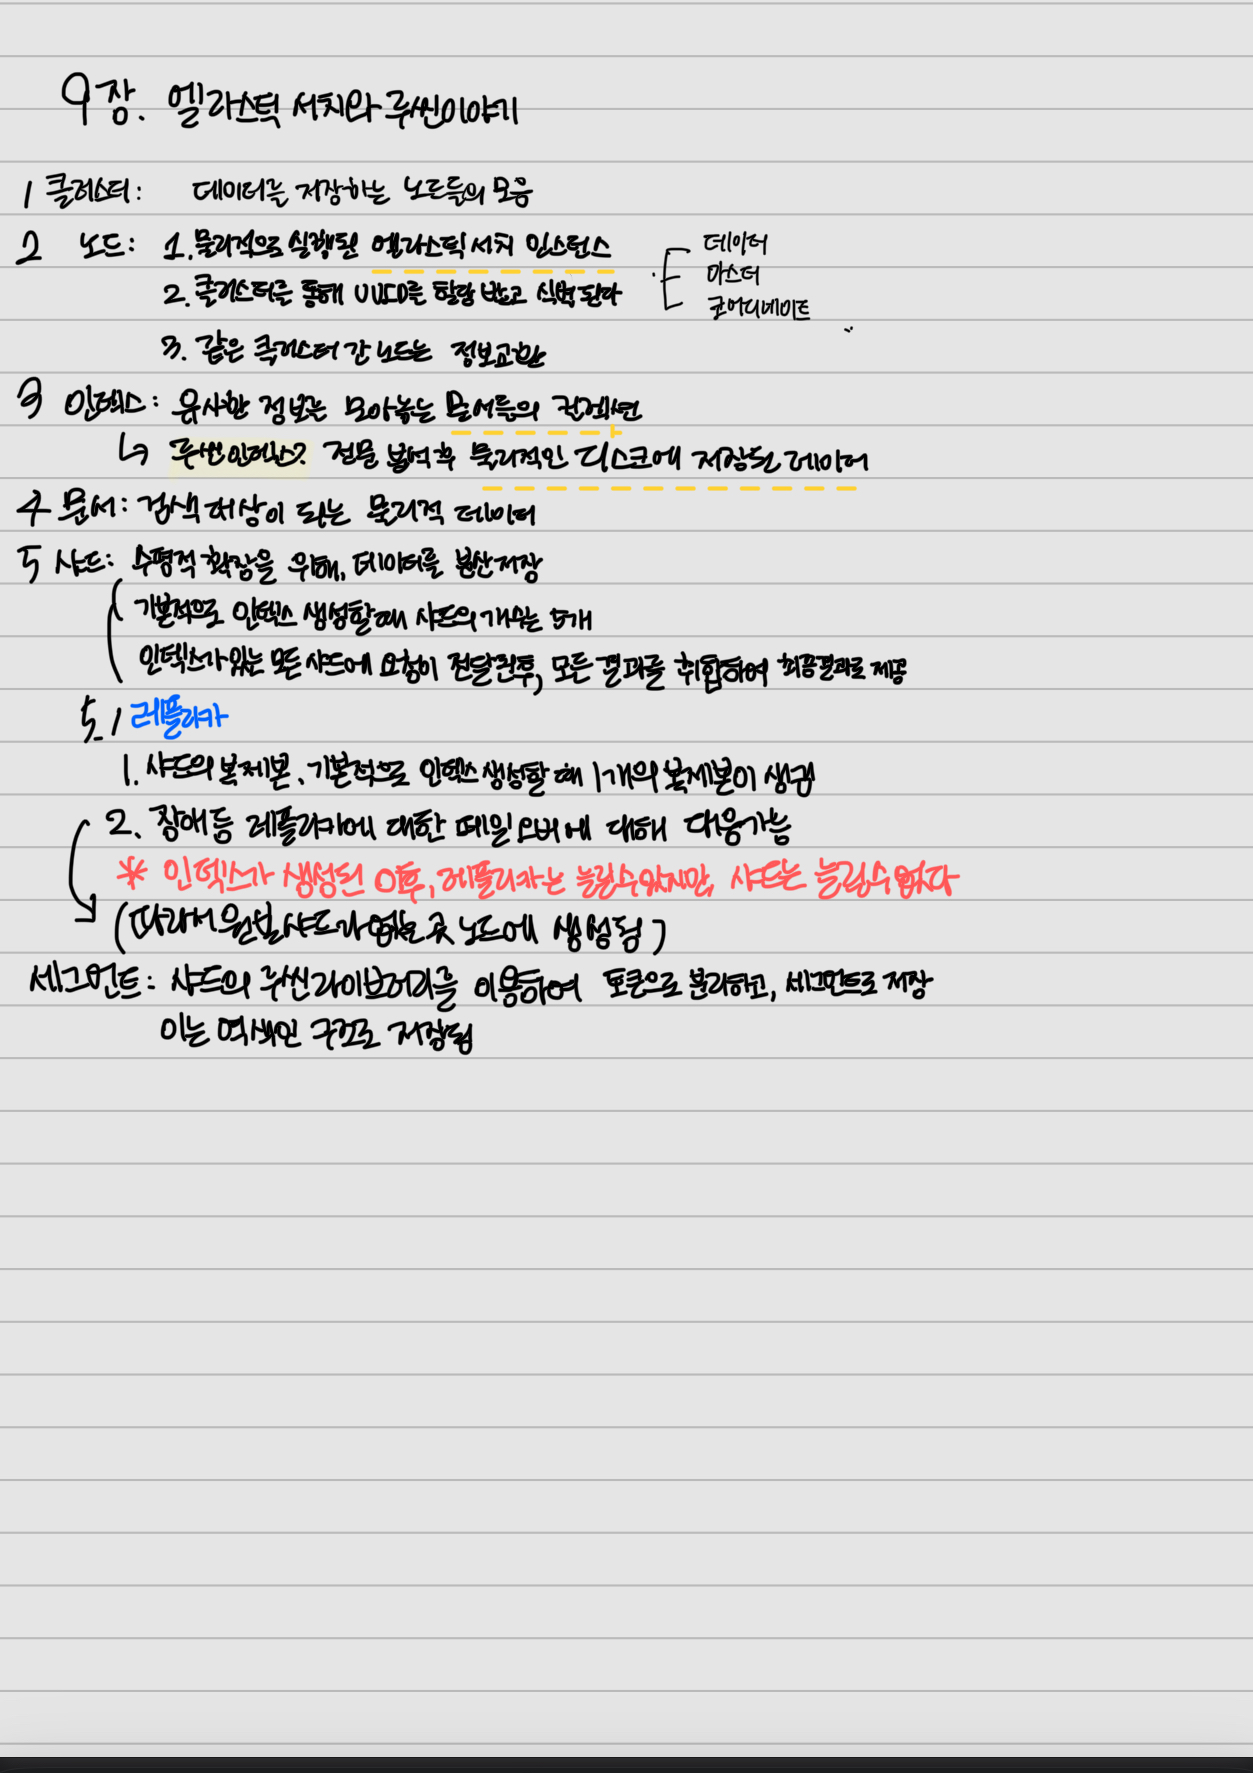 9장. 엘라스틱 서치와 루씬이야기
1 클러스터: 데이터를 저장하는 노드들의 모음
2 노드: 1. 물리적으로 실행된 엘라스틱 서치 인스턴스
데이터
마스터
코어디네이트
2. 클러스터를 통해 UUID를 할당 받고 식별된다
3. 같은 클러스터 간 노드는 정보교환
3 인덱스: 유사한 정보를 모아놓는 문서들의 컬렉션
↳ 루씬인덱스? 전문 분석 후 물리적인 디스크에 저장된 데이터
4 문서: 검색 대상이 되는 물리적 데이터
5 샤드: 수평적 확장을 위해, 데이터를 분산저장
기본적으로 인덱스 생성할때 샤드의 개수는 5개
인덱스가 있는 모든 샤드에 요청이 전달된후, 모든 결과를 취합하여 최종결과로 제공
5.1 레플리카
1. 샤드의 복제본. 기본적으로 인덱스 생성할 때 1개의 복제본이 생성
2. 장애등 레플리카에 대한 페일오버에 대해 대응가능
* 인덱스가 생성된 이후, 레플리카는 늘릴수있지만, 샤드는 늘릴수없다
(따라서 원본 샤드가 없는 곳 노드에 생성됨)
세그먼트: 샤드의 루씬라이브러리를 이용하여 토큰으로 분리하고, 세그먼트로 저장
이는 역색인 구조로 저장됨